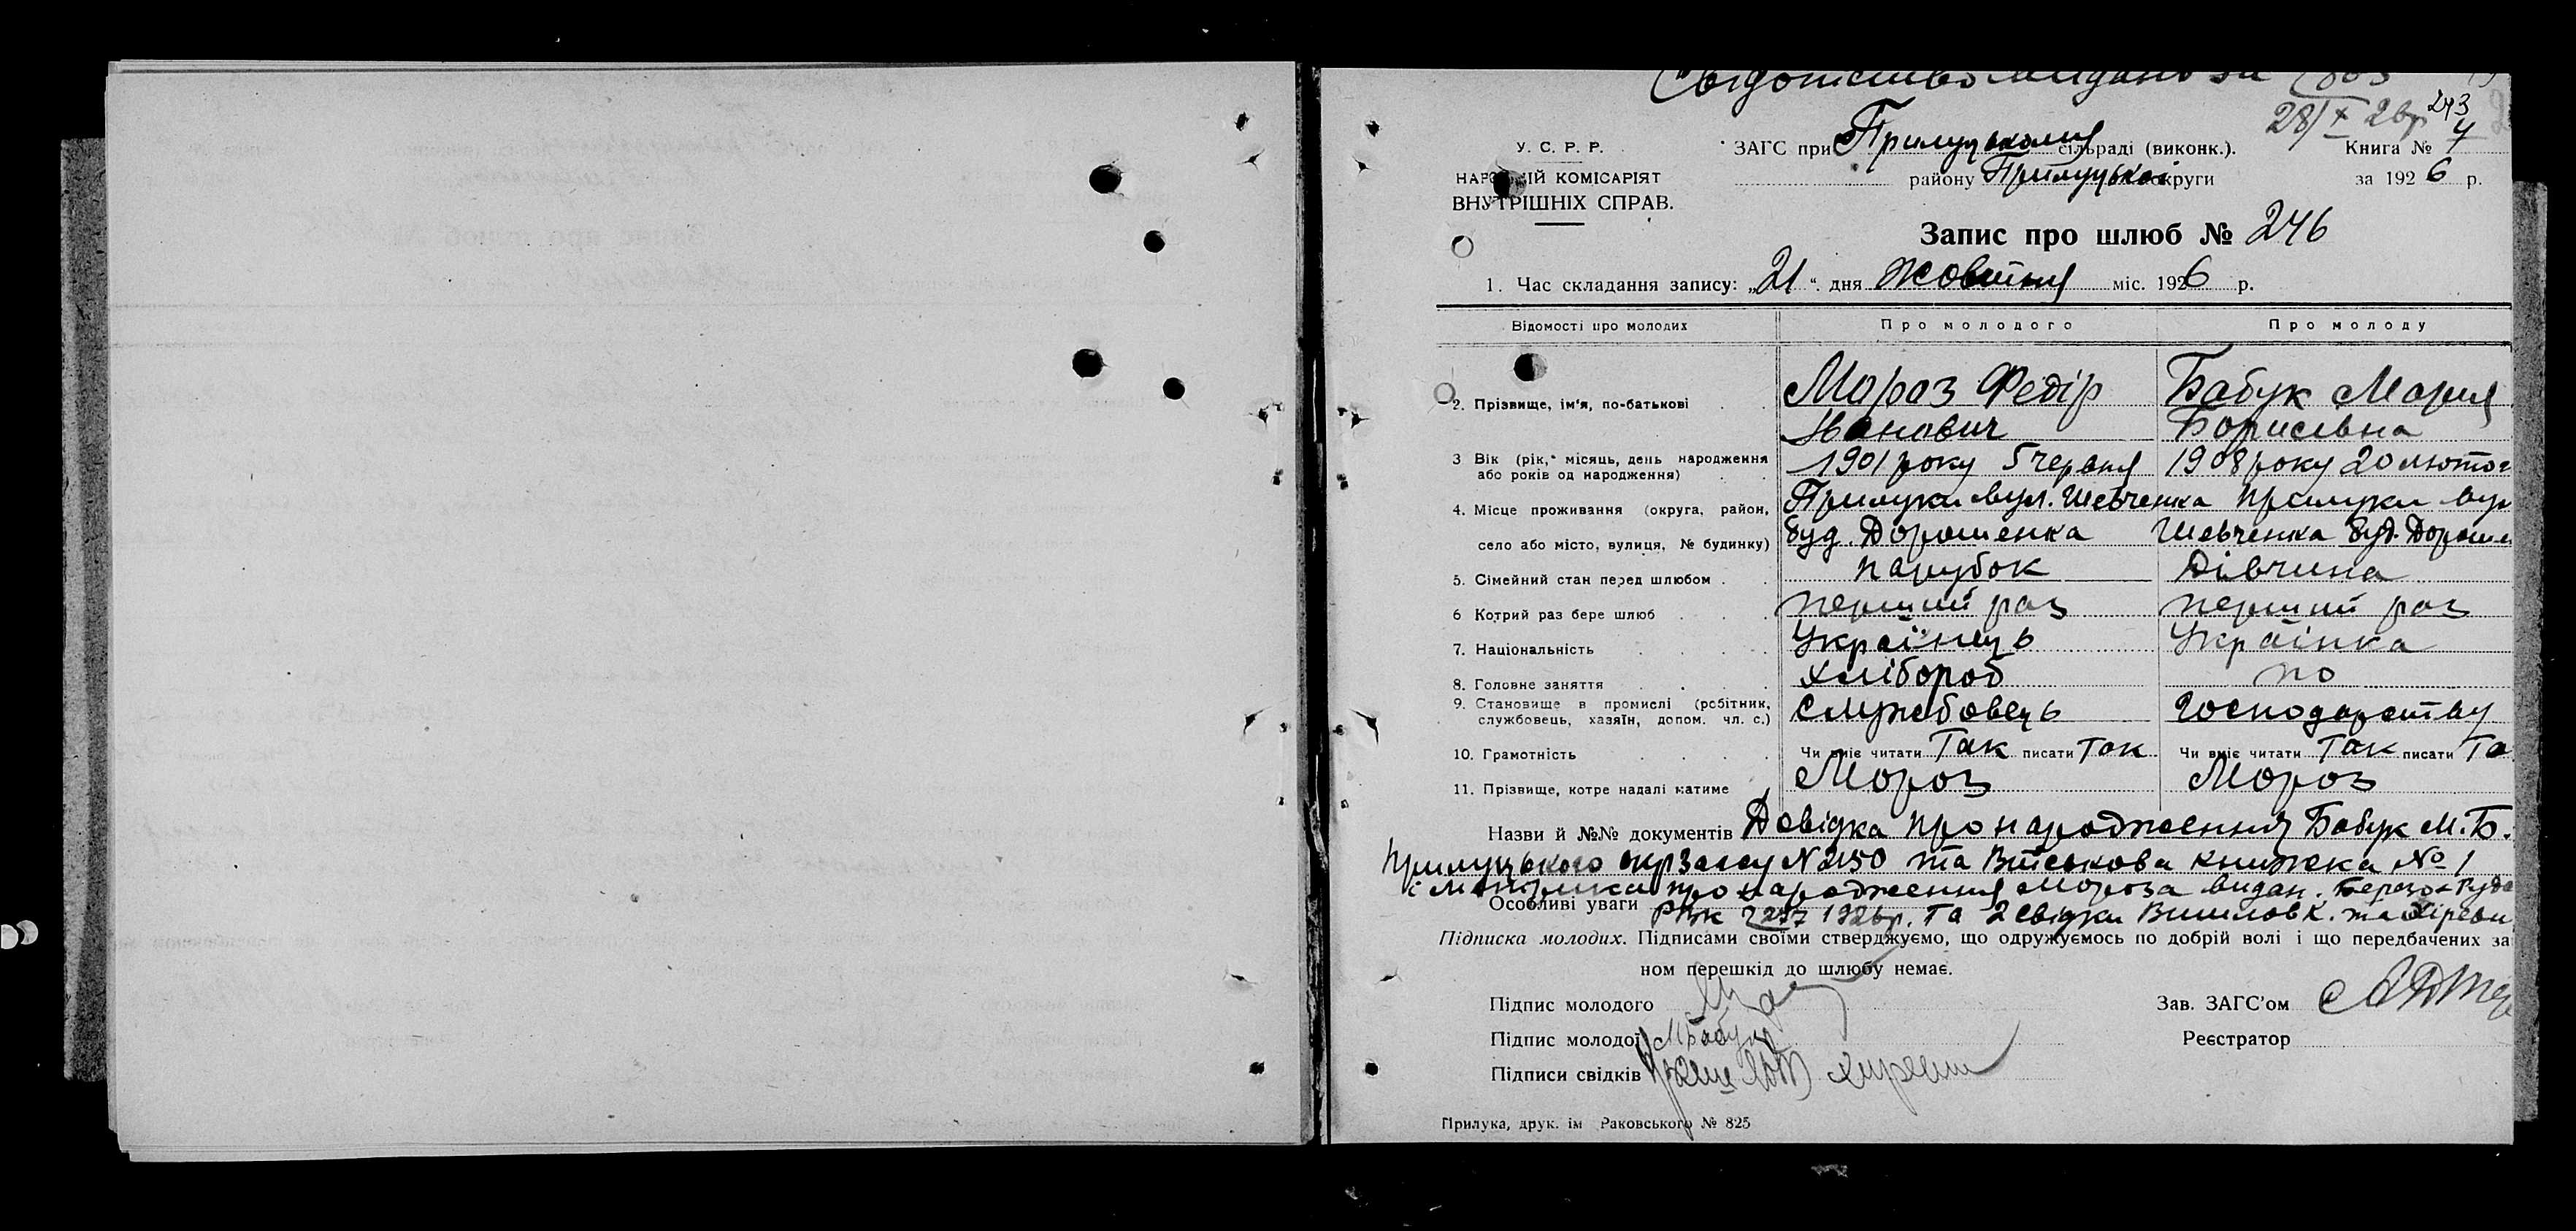 Свідотство видано за 1803
28/X 26р 243
У. С. Р. Р.
НАРОДНІЙ КОМІСАРІЯТ
ВНУТРІШНІХ СПРАВ.
ЗАГС при Прилуцькому сільраді (виконк.). Книга № 4
району Прилуцької округи за 1926 р.
Запис про шлюб № 246
1. Час складання запису: „21“ дня Жовтня міс. 1926 р.
Відомості про молодих Про молодого Про молоду
2. Прізвище, ім'я, по-батькові Мороз Федір Бабук Мария
Іванович Борисівна
3 Вік (рік, місяць, день народження 1901 року 5 червня 1908 року 20 лютог
або років од народження)
4. Місце проживання (округа, район, Прилуки вул. Шевченка Прилуки вул
село або місто, вулиця, № будинку) буд. Дорошенка Шевченка буд. Дороше
5. Сімейний стан перед шлюбом парубок Дівчина
6 Котрий раз бере шлюб перший раз перший раз
7. Національність Українець Українка
8. Головне заняття хлібороб по
9. Становище в промислі (робітник, службовець Господарству
службовець, хазяїн, допом. чл. с.)
10. Грамотність Чи вміє читати Так писати Так Чи вміє читати Так писати Та
11. Прізвище, котре надалі матиме Мороз Мороз
Назви й №№ документів Довідка про народження Бабук М. Б.
Прилуцького окрЗагсу N 2150 та Військова книжка № 1
і метрика про народження Мороза видан. Березо-Рудс
Особливі уваги РВК 1926р. та 2 свідки
Підписка молодих. Підписами своїми стверджуємо, що одружуємось по добрій волі і що передбачених за
ном перешкід до шлюбу немає.
Підпис молодого
Підпис молодої МБабук
Підписи свідків
Зав. ЗАГС'ом
Реєстратор
Прилука, друк. ім Раковського № 825